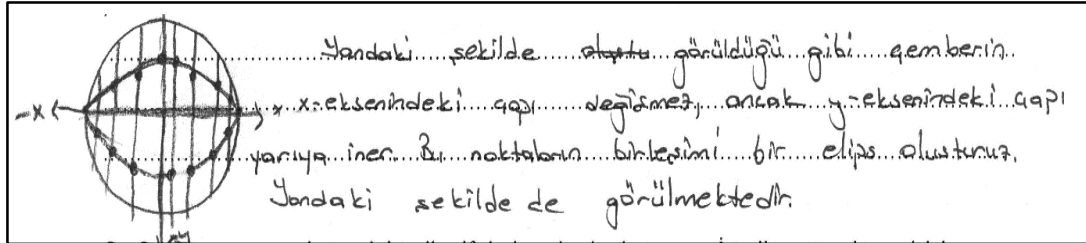 Yandaki şekilde oluştu görüldüğü gibi çemberin
-x x x-eksenindeki çapı değişmez, ancak y-eksenindeki çapı
yarıya iner. Bu noktaların birleşimi bir elips oluşturur.
Yandaki şekilde de görülmektedir.